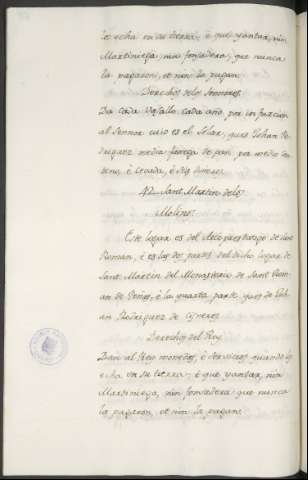 lo echa en su tierra, è que yantar, nin
Martiniega, nin fonsadera, que nunca
la pagaron, et nin la pagan.
Derechos delos Sennores.
Da cada Vasallo cada año, por infurcion
al Sennor cuio es el Solar, que es Johan Ro
driguez media fanega de pan, por medio
è cevada, è seis dineros.
42. Sant Martin delos
Molinos.
Este logar es del Arciprestazgo de Sant
Roman, è es las dos partes del dicho logar de
Sant Martin del Monasterio de Sant Roman
de è la quarta parte que es de Joh
an Rodriguez de Cisneros.
Derechos del Rey.
Dan al Rey monedas, è servicios quando lo
echa en su tierra, è que yantar, nin
Martiniega, nin fonsadera que nunca
la pagaron, et nin la pagan.